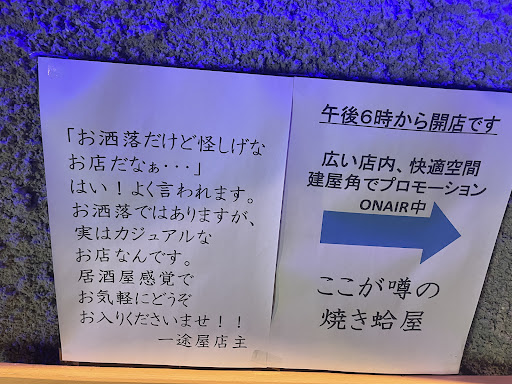 「お洒落だけど怪しげな
お店だなぁ・・・」
はい！よく言われます。
お洒落ではありますが、
実はカジュアルな
お店なんです。
居酒屋感覚で
お気軽にどうぞ
お入りくださいませ！！
一途屋店主
午後６時から開店です
広い店内、快適空間
建屋角でプロモーション
ONAIR中
ここが噂の
焼き蛤屋